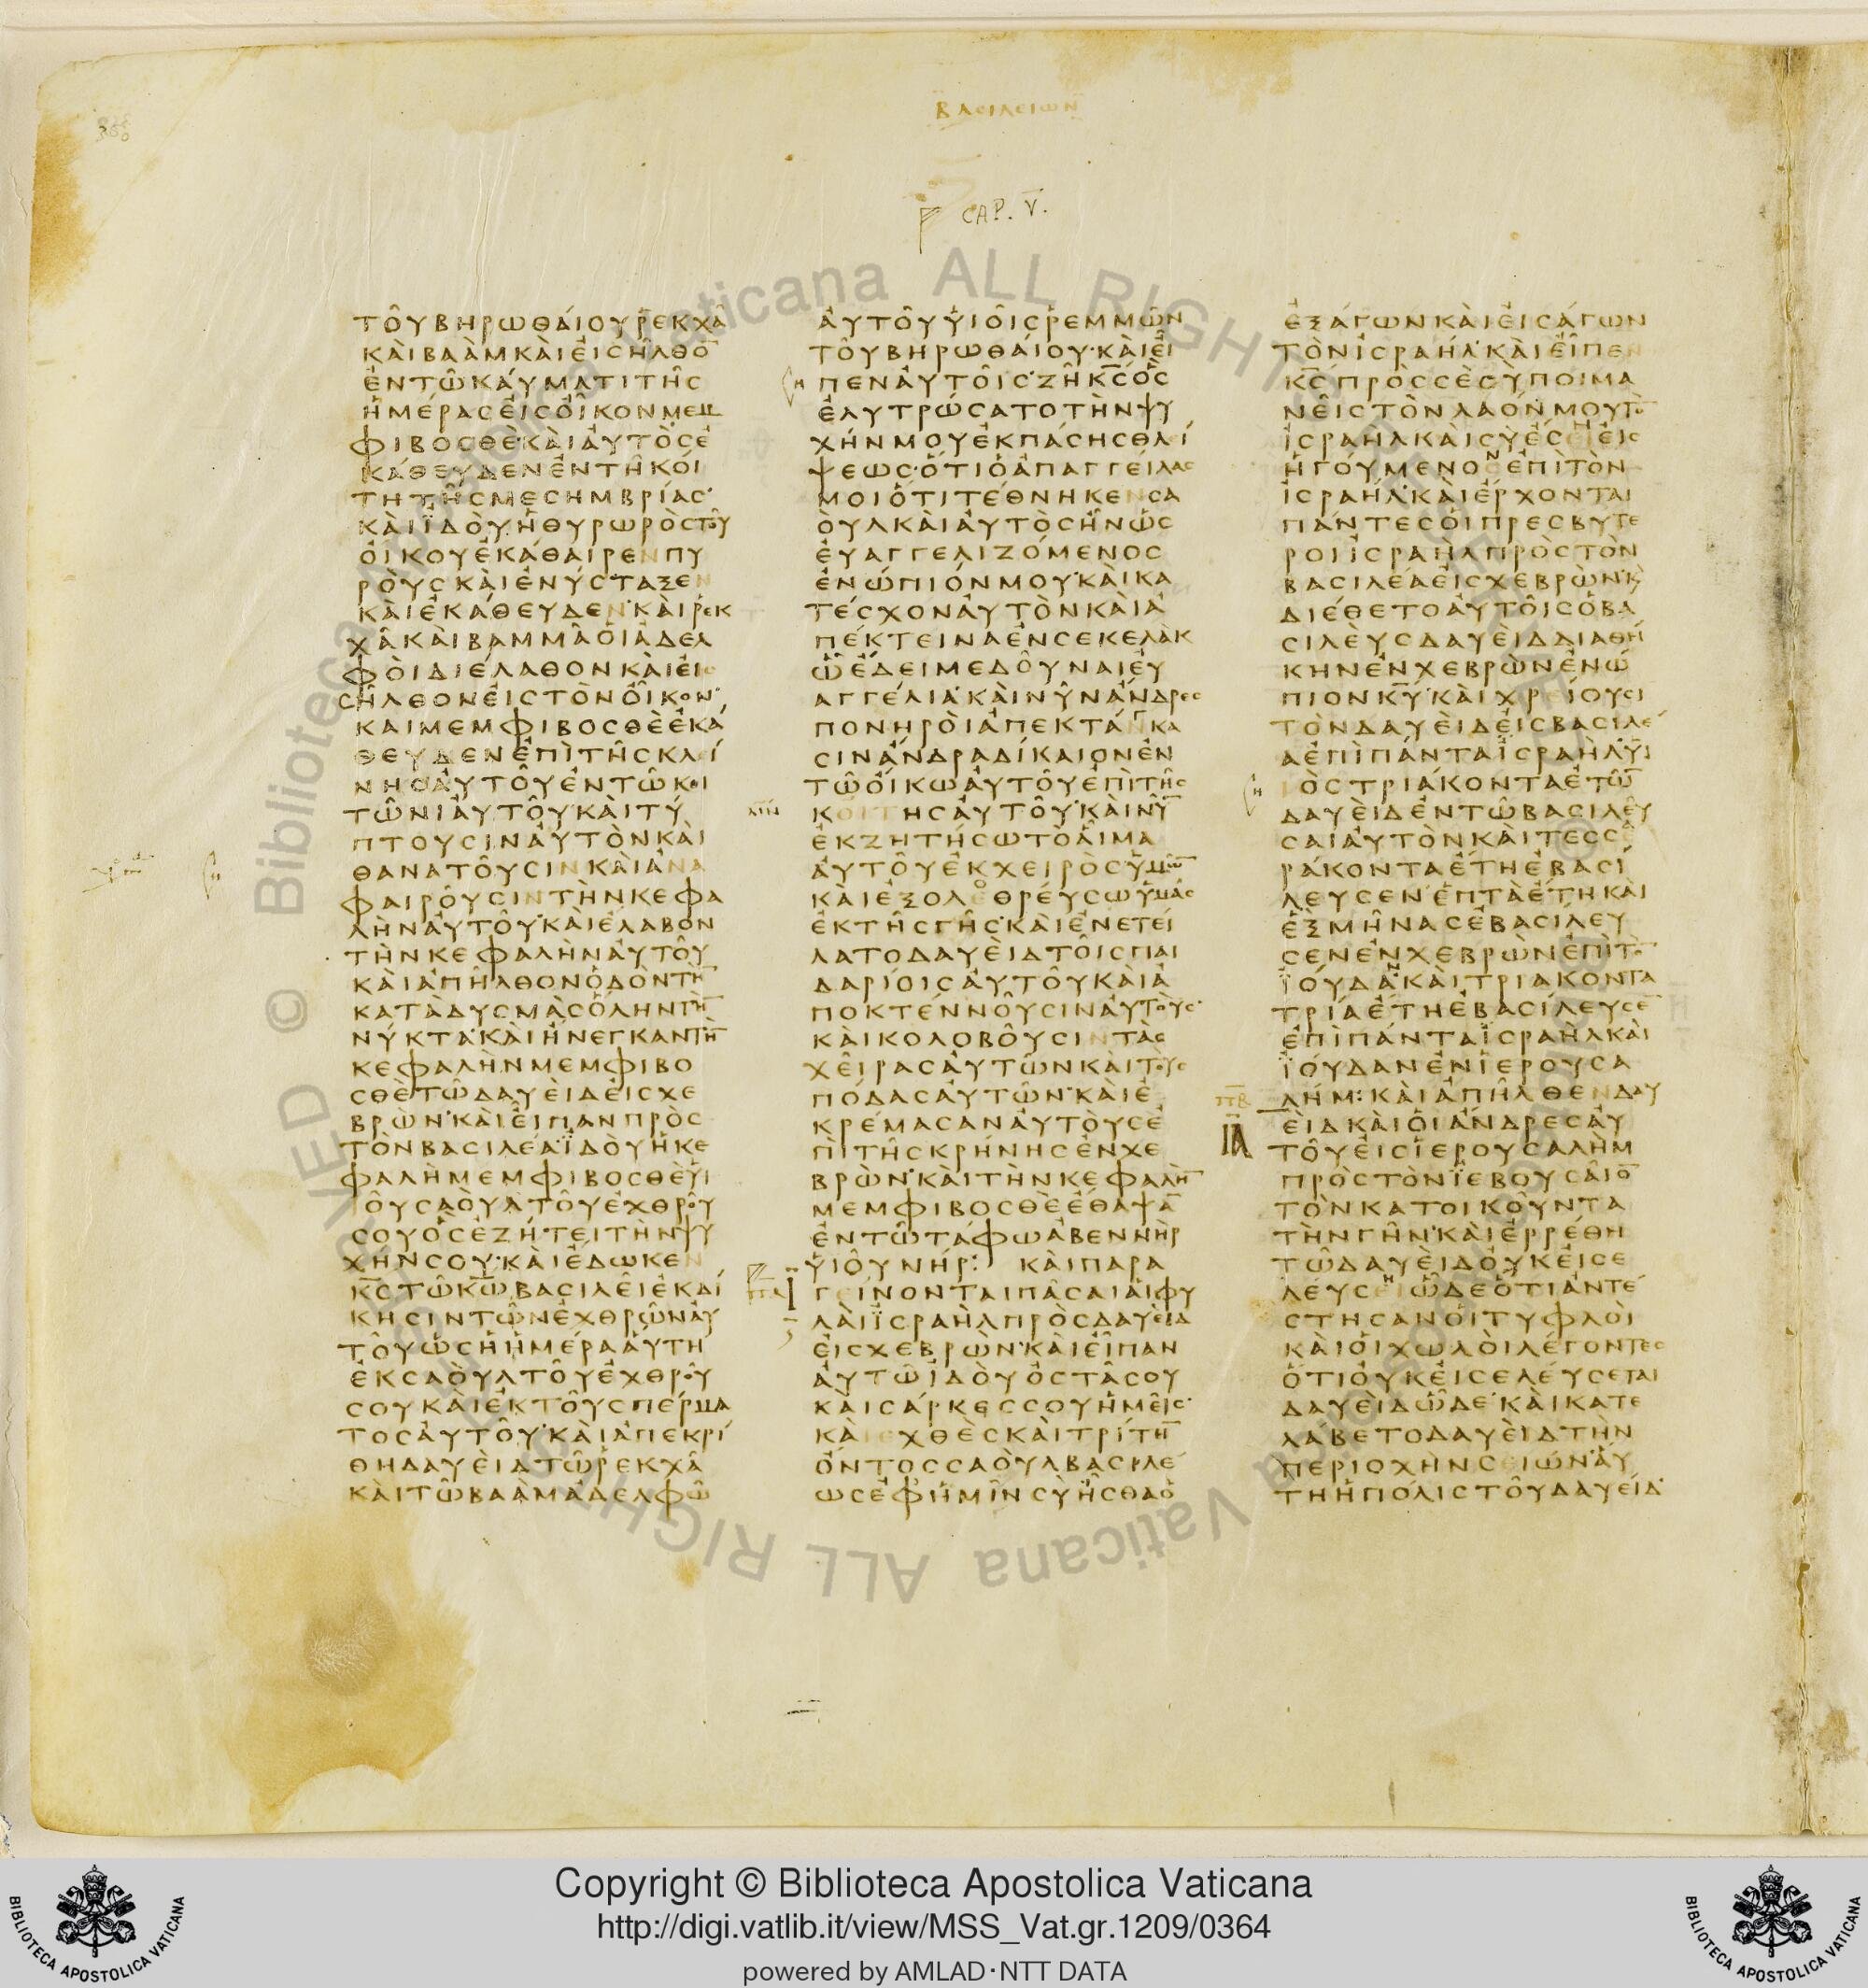 ΒΑΣΙΛΕΙΩΝ
CAP. V.
ΤΟΥΒΗΡΩΘΑΙΟΥΡΕΚΧΑ̅
ΚΑΙΒΑΑΜΚΑΙΕΙΣΗΛΘΟ̅
ΕΝΤΩΚΑΥΜΑΤΙΤΗΣ
ΗΜΕΡΑΣΕΙΣΟΙΚΟΝΜΕΜ
ΦΙΒΟΣΘΕ·ΚΑΙΑΥΤΟΣΕ
ΚΑΘΕΥΔΕΝΕΝΤΗΚΟΙ
ΤΗΤΗΣΜΕΣΗΜΒΡΙΑΣ·
ΚΑΙΪΔΟΥΗΘΥΡΩΡΟΣΤΟΥ
ΟΙΚΟΥΕΚΑΘΑΙΡΕΝΠΥ
ΡΟΥΣΚΑΙΕΝΥΣΤΑΞΕΝ
ΚΑΙΕΚΑΘΕΥΔΕΝ·ΚΑΙΡΕΚ
ΧΑΚΑΙΒΑΜΜΑΟΙΑΔΕΛ
ΦΟΙΔΙΕΛΑΘΟΝΚΑΙΕΙΣ
ΣΗΛΘΟΝΕΙΣΤΟΝΟΙΚΟΝ·
ΚΑΙΜΕΜΦΙΒΟΣΘΕΕΚΑ
ΘΕΥΔΕΝΕΠΙΤΗΣΚΛΕΙ
ΝΗΣΑΥΤΟΥΕΝΤΩΚΟΙ
ΤΩΝΙΑΥΤΟΥ·ΚΑΙΤΥ
ΠΤΟΥΣΙΝΑΥΤΟΝΚΑΙ
ΘΑΝΑΤΟΥΣΙΝΚΑΙΑΝΑ
ΦΑΙΡΟΥΣΙΝΤΗΝΚΕΦΑ
ΛΗΝΑΥΤΟΥ·ΚΑΙΕΛΑΒΟΝ
ΤΗΝΚΕΦΑΛΗΝΑΥΤΟΥ
ΚΑΙΑΠΗΛΘΟΝΟΔΟΝΤΗ̅
ΚΑΤΑΔΥΣΜΑΣΟΛΗΝΤΗ̅
ΝΥΚΤΑ·ΚΑΙΗΝΕΓΚΑΝΤΗ̅
ΚΕΦΑΛΗΝΜΕΜΦΙΒΟ
ΣΘΕΤΩΔΑΥΕΙΔΕΙΣΧΕ
ΒΡΩΝ·ΚΑΙΕΙΠΑΝΠΡΟΣ
ΤΟΝΒΑΣΙΛΕΑ·ΪΔΟΥΗΚΕ
ΦΑΛΗΜΕΜΦΙΒΟΣΘΕΥΙ
ΟΥΣΑΟΥΛΤΟΥΕΧΘΡΟΥ
ΣΟΥΟΣΕΖΗΤΕΙΤΗΝΨΥ
ΧΗΝΣΟΥ·ΚΑΙΕΔΩΚΕΝ
Κ̅Σ̅ΤΩΚ̅Ω̅ΒΑΣΙΛΕΙΕΚΔΙ
ΚΗΣΙΝΤΩΝΕΧΘΡΩΝΑΥ
ΤΟΥΩΣΗΗΜΕΡΑΑΥΤΗ
ΕΚΣΑΟΥΛΤΟΥΕΧΘΡΟΥ
ΣΟΥΚΑΙΕΚΤΟΥΣΠΕΡΜΑ
ΤΟΣΑΥΤΟΥ·ΚΑΙΑΠΕΚΡΙ
ΘΗΔΑΥΕΙΔΤΩΡΕΚΧΑ
ΚΑΙΤΩΒΑΑΜΑΔΕΛΦΩ
ΑΥΤΟΥΥΙΟΙΣΡΕΜΜΩΝ
ΤΟΥΒΗΡΩΘΑΙΟΥ·ΚΑΙΕΙ
ΠΕΝΑΥΤΟΙΣ·ΖΗΚ̅Σ̅ΟΣ
ΕΛΥΤΡΩΣΑΤΟΤΗΝΨΥ
ΧΗΝΜΟΥΕΚΠΑΣΗΣΘΛΕΙ
ΨΕΩΣ·ΟΤΙΟΑΠΑΓΓΕΙΛΑΣ
ΜΟΙΟΤΙΤΕΘΝΗΚΕΝΣΑ
ΟΥΛΚΑΙΑΥΤΟΣΗΝΩΣ
ΕΥΑΓΓΕΛΙΖΟΜΕΝΟΣ
ΕΝΩΠΙΟΝΜΟΥ·ΚΑΙΚΑ
ΤΕΣΧΟΝΑΥΤΟΝΚΑΙΑ
ΠΕΚΤΕΙΝΑΕΝΣΕΚΕΛΑΚ
ΩΕΔΕΙΜΕΔΟΥΝΑΙΕΥ
ΑΓΓΕΛΙΑ·ΚΑΙΝΥΝΑΝΔΡΕΣ
ΠΟΝΗΡΟΙΑΠΕΚΤΑΓΚΑ
ΣΙΝΑΝΔΡΑΔΙΚΑΙΟΝΕΝ
ΤΩΟΙΚΩΑΥΤΟΥΕΠΙΤΗΣ
ΚΟΙΤΗΣΑΥΤΟΥ·ΚΑΙΝΥ̅
ΕΚΖΗΤΗΣΩΤΟΑΙΜΑ
ΑΥΤΟΥΕΚΧΕΙΡΟΣΥΜΩ̅
ΚΑΙΕΞΟΛΕΘΡΕΥΣΩΥΜΑΣ
ΕΚΤΗΣΓΗΣ·ΚΑΙΕΝΕΤΕΙ
ΛΑΤΟΔΑΥΕΙΔΤΟΙΣΠΑΙ
ΔΑΡΙΟΙΣΑΥΤΟΥΚΑΙΑ
ΠΟΚΤΕΝΝΟΥΣΙΝΑΥΤΟΥΣ·
ΚΑΙΚΟΛΟΒΟΥΣΙΝΤΑΣ
ΧΕΙΡΑΣΑΥΤΩΝΚΑΙΤΟΥΣ
ΠΟΔΑΣΑΥΤΩΝ·ΚΑΙΕ
ΚΡΕΜΑΣΑΝΑΥΤΟΥΣΕ
ΠΙΤΗΣΚΡΗΝΗΣΕΝΧΕ
ΒΡΩΝ·ΚΑΙΤΗΝΚΕΦΑΛΗ̅
ΜΕΜΦΙΒΟΣΘΕΕΘΑΨΑ̅
ΕΝΤΩΤΑΦΩΑΒΕΝΝΗΡ
ΥΙΟΥΝΗΡ: ΚΑΙΠΑΡΑ
ΓΕΙΝΟΝΤΑΙΠΑΣΑΙΑΙΦΥ
ΛΑΙΪΣΡΑΗΛΠΡΟΣΔΑΥΕΙΔ
ΕΙΣΧΕΒΡΩΝ·ΚΑΙΕΙΠΑΝ
ΑΥΤΩΙΔΟΥΟΣΤΑΣΟΥ
ΚΑΙΣΑΡΚΕΣΣΟΥΗΜΕΙΣ·
ΚΑΙΕΧΘΕΣΚΑΙΤΡΙΤΗ̅
ΟΝΤΟΣΣΑΟΥΛΒΑΣΙΛΕ
ΩΣΕΦΗΜΙΝΣΥΗΣΘΑΟ
ΕΞΑΓΩΝΚΑΙΕΙΣΑΓΩΝ
ΤΟΝΙΣΡΑΗΛ·ΚΑΙΕΙΠΕΝ
Κ̅Σ̅ΠΡΟΣΣΕΣΥΠΟΙΜΑ
ΝΕΙΣΤΟΝΛΑΟΝΜΟΥΤΟ̅
ΙΣΡΑΗΛΚΑΙΣΥΕΣΕΙΕΙΣ
ΗΓΟΥΜΕΝΟΝΕΠΙΤΟΝ
ΙΣΡΑΗΛ·ΚΑΙΕΡΧΟΝΤΑΙ
ΠΑΝΤΕΣΟΙΠΡΕΣΒΥΤΕ
ΡΟΙΙΣΡΑΗΛΠΡΟΣΤΟΝ
ΒΑΣΙΛΕΑΕΙΣΧΕΒΡΩΝ·Κ
ΔΙΕΘΕΤΟΑΥΤΟΙΣΟΒΑ
ΣΙΛΕΥΣΔΑΥΕΙΔΔΙΑΘΗ
ΚΗΝΕΝΧΕΒΡΩΝΕΝΩ
ΠΙΟΝΚ̅Υ̅·ΚΑΙΧΡΕΙΟΥΣΙ
ΤΟΝΔΑΥΕΙΔΕΙΣΒΑΣΙΛΕ
ΑΕΠΙΠΑΝΤΑΪΣΡΑΗΛ·ΥΪ
ΟΣΤΡΙΑΚΟΝΤΑΕΤΩ̅
ΔΑΥΕΙΔΕΝΤΩΒΑΣΙΛΕΥ
ΣΑΙΑΥΤΟΝΚΑΙΤΕΣΣΕ
ΡΑΚΟΝΤΑΕΤΗΕΒΑΣΙ
ΛΕΥΣΕΝ·ΕΠΤΑΕΤΗΚΑΙ
ΕΞΜΗΝΑΣΕΒΑΣΙΛΕΥ
ΣΕΝΕΝΧΕΒΡΩΝΕΠΙΤΟ̅
ΪΟΥΔΑΝΚΑΙΤΡΙΑΚΟΝΤΑ
ΤΡΙΑΕΤΗΕΒΑΣΙΛΕΥΣΕ̅
ΕΠΙΠΑΝΤΑΪΣΡΑΗΛΚΑΙ
ΪΟΥΔΑΝΕΝΪΕΡΟΥΣΑ
ΛΗΜ:ΚΑΙΑΠΗΛΘΕΝΔΑΥ
ΕΙΔΚΑΙΟΙΑΝΔΡΕΣΑΥ
ΤΟΥΕΙΣΪΕΡΟΥΣΑΛΗΜ
ΠΡΟΣΤΟΝΪΕΒΟΥΣΑΙΟ̅
ΤΟΝΚΑΤΟΙΚΟΥΝΤΑ
ΤΗΝΓΗΝ·ΚΑΙΕΡΡΕΘΗ
ΤΩΔΑΥΕΙΔΟΥΚΕΙΣΕ
ΛΕΥΣΗΩΔΕΟΤΙΑΝΤΕ
ΣΤΗΣΑΝΟΙΤΥΦΛΟΙ
ΚΑΙΟΙΧΩΛΟΙΛΕΓΟΝΤΕΣ
ΟΤΙΟΥΚΕΙΣΕΛΕΥΣΕΤΑΙ
ΔΑΥΕΙΔΩΔΕ·ΚΑΙΚΑΤΕ
ΛΑΒΕΤΟΔΑΥΕΙΔΤΗΝ
ΠΕΡΙΟΧΗΝΣΕΙΩΝ·ΑΥ
ΤΗΗΠΟΛΙΣΤΟΥΔΑΥΕΙΔ·
© Biblioteca Apostolica Vaticana ALL RIGHTS RESERVED
Copyright © Biblioteca Apostolica Vaticana
http://digi.vatlib.it/view/MSS_Vat.gr.1209/0364
powered by AMLAD·NTT DATA
BIBLIOTECA APOSTOLICA VATICANA
BIBLIOTECA APOSTOLICA VATICANA